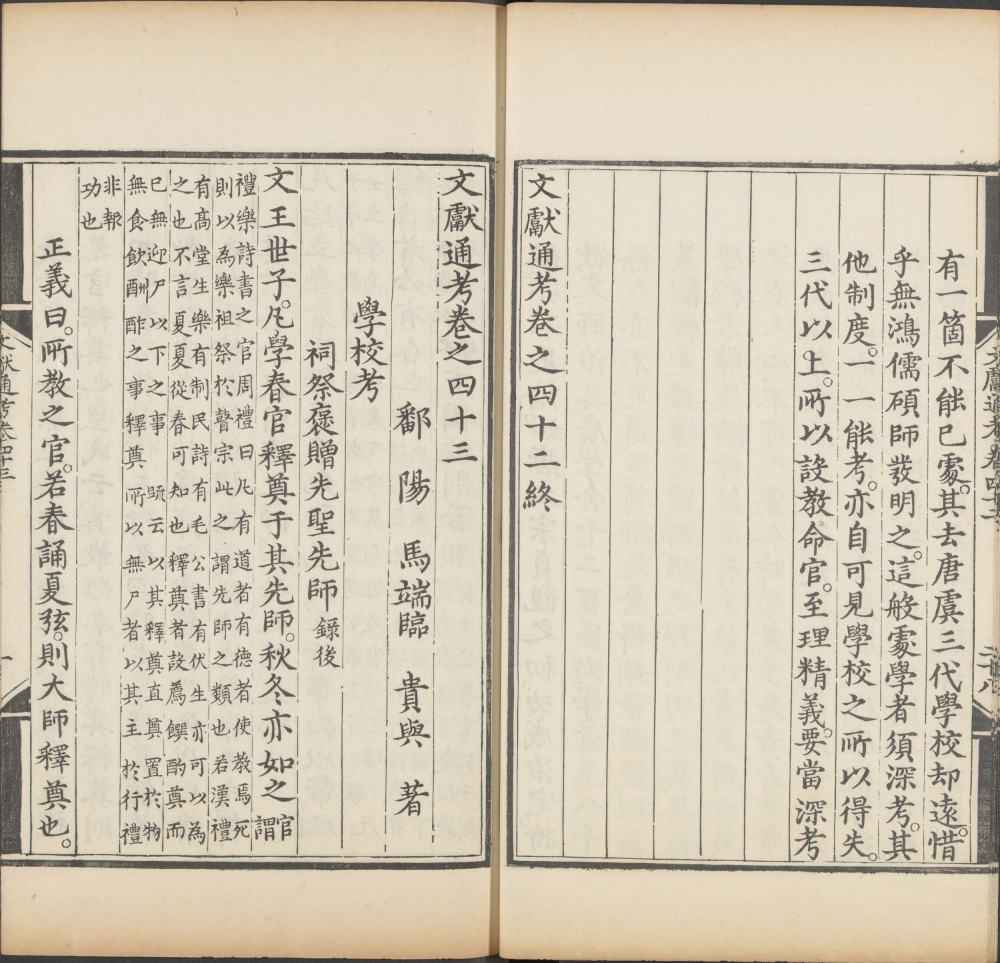 有一箇不能已處。其去唐虞三代學校却遠。惜
乎無鴻儒碩師發明之。這般處學者須深考。其
他制度。一一能考。亦自可見學校之所以得失。
三代以上。所以設教命官。至理精義。要當深考
文獻通考卷之四十二終
文獻通考卷之四十三
鄱陽 馬端臨 貴與 著
學校考
祠祭褒贈先聖先師 錄後
文王世子。凡學春官釋奠于其先師。秋冬亦如之 官謂
禮樂詩書之官周禮曰凡有道者有德者使教焉死
則以為樂祖祭於瞽宗此之謂先師之類也若漢禮
有高堂生樂有制民詩有毛公書有伏生亦可以為
之也不言夏夏從春可知也釋奠者設薦饌酌奠而
已無迎尸以下之事䟽云以其釋奠直奠置於物
無食飲酬酢之事釋奠所以無尸者以其主於行禮
非報
功也
正義曰。所教之官。若春誦夏弦。則大師釋奠也。
文獻通考卷四十三
一